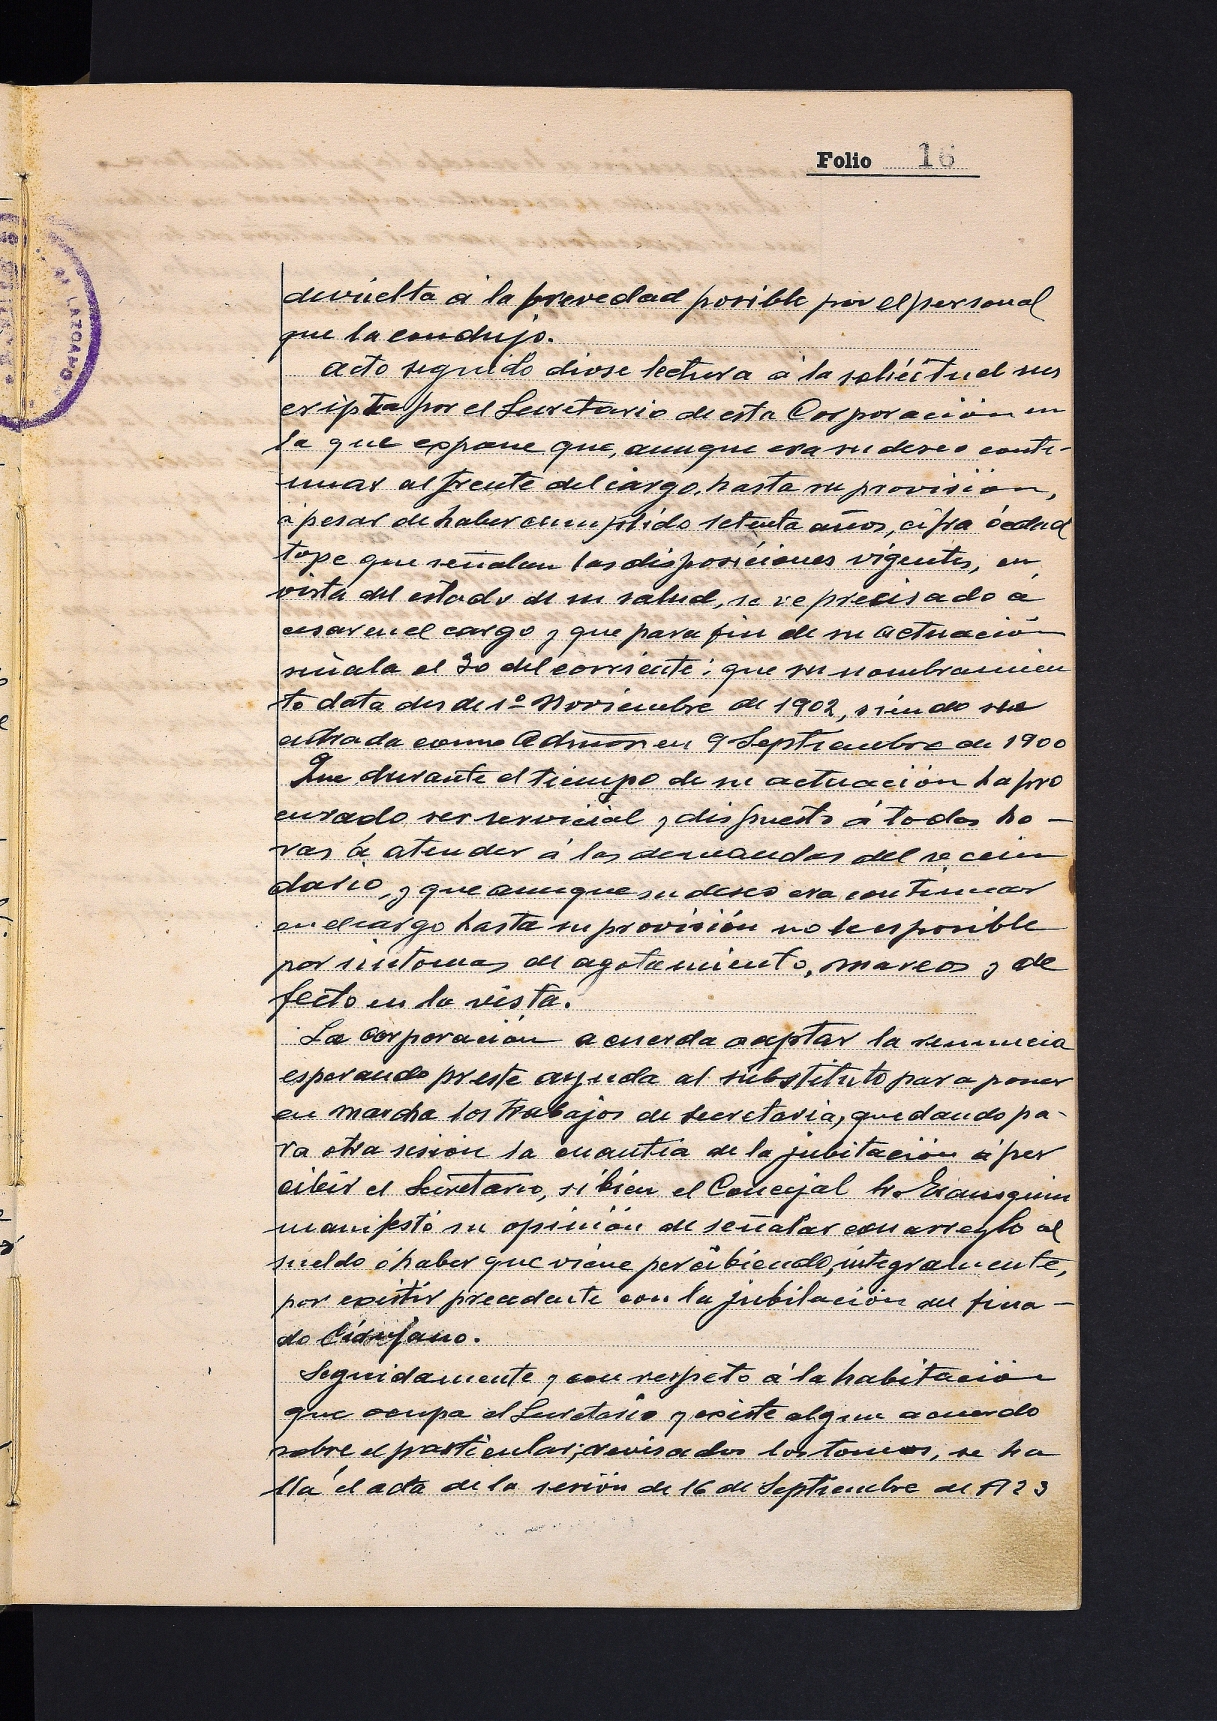 Folio 16
devuelta á la brevedad posible por el personal
que la condujo.
Acto seguido diose lectura á la solicitud sus
cripta por el Secretario de esta Corporación en
la que expone que, aunque era su deseo conti-
nuar al frente del cargo, hasta su provisión,
á pesar de haber cumplido setenta años, cifra ó edad
tope que señalan las disposiciones vigentes, en
vista del estado de su salud, se ve precisado á
cesar en el cargo y que para fin de su actuación
señala el 30 del corriente: que su nombramien
to data desde 1º Noviembre de 1902, siendo su
entrada como Admor en 9 Septiembre de 1900
Que durante el tiempo de su actuación ha pro
curado ser servicial y dispuesto á todas ho-
ras á atender á las demandas del vecin
dario, y que aunque su deseo era continuar
en el cargo hasta su provisión no le es posible
por síntomas de agotamiento, mareos y de
fecto en la vista.
La corporación acuerda aceptar la renuncia
esperando preste ayuda al substituto para poner
en marcha los trabajos de secretaria, quedando pa-
ra otra sesión la cuantía de la jubilación á per
cibir el Secretario, si bien el Concejal Sr. Eranoquin
manifestó su opinión de señalar con arreglo al
sueldo ó haber que viene percibiendo, integramente,
por existir precedente con la jubilación del fina-
do
Seguidamente y con respeto á la habitación
que ocupa el Secretario y existe algun acuerdo
sobre el particular; revisados los tomos, se ha
lla el acta de la sesión de 16 de Septiembre de 1923
LAZCANO